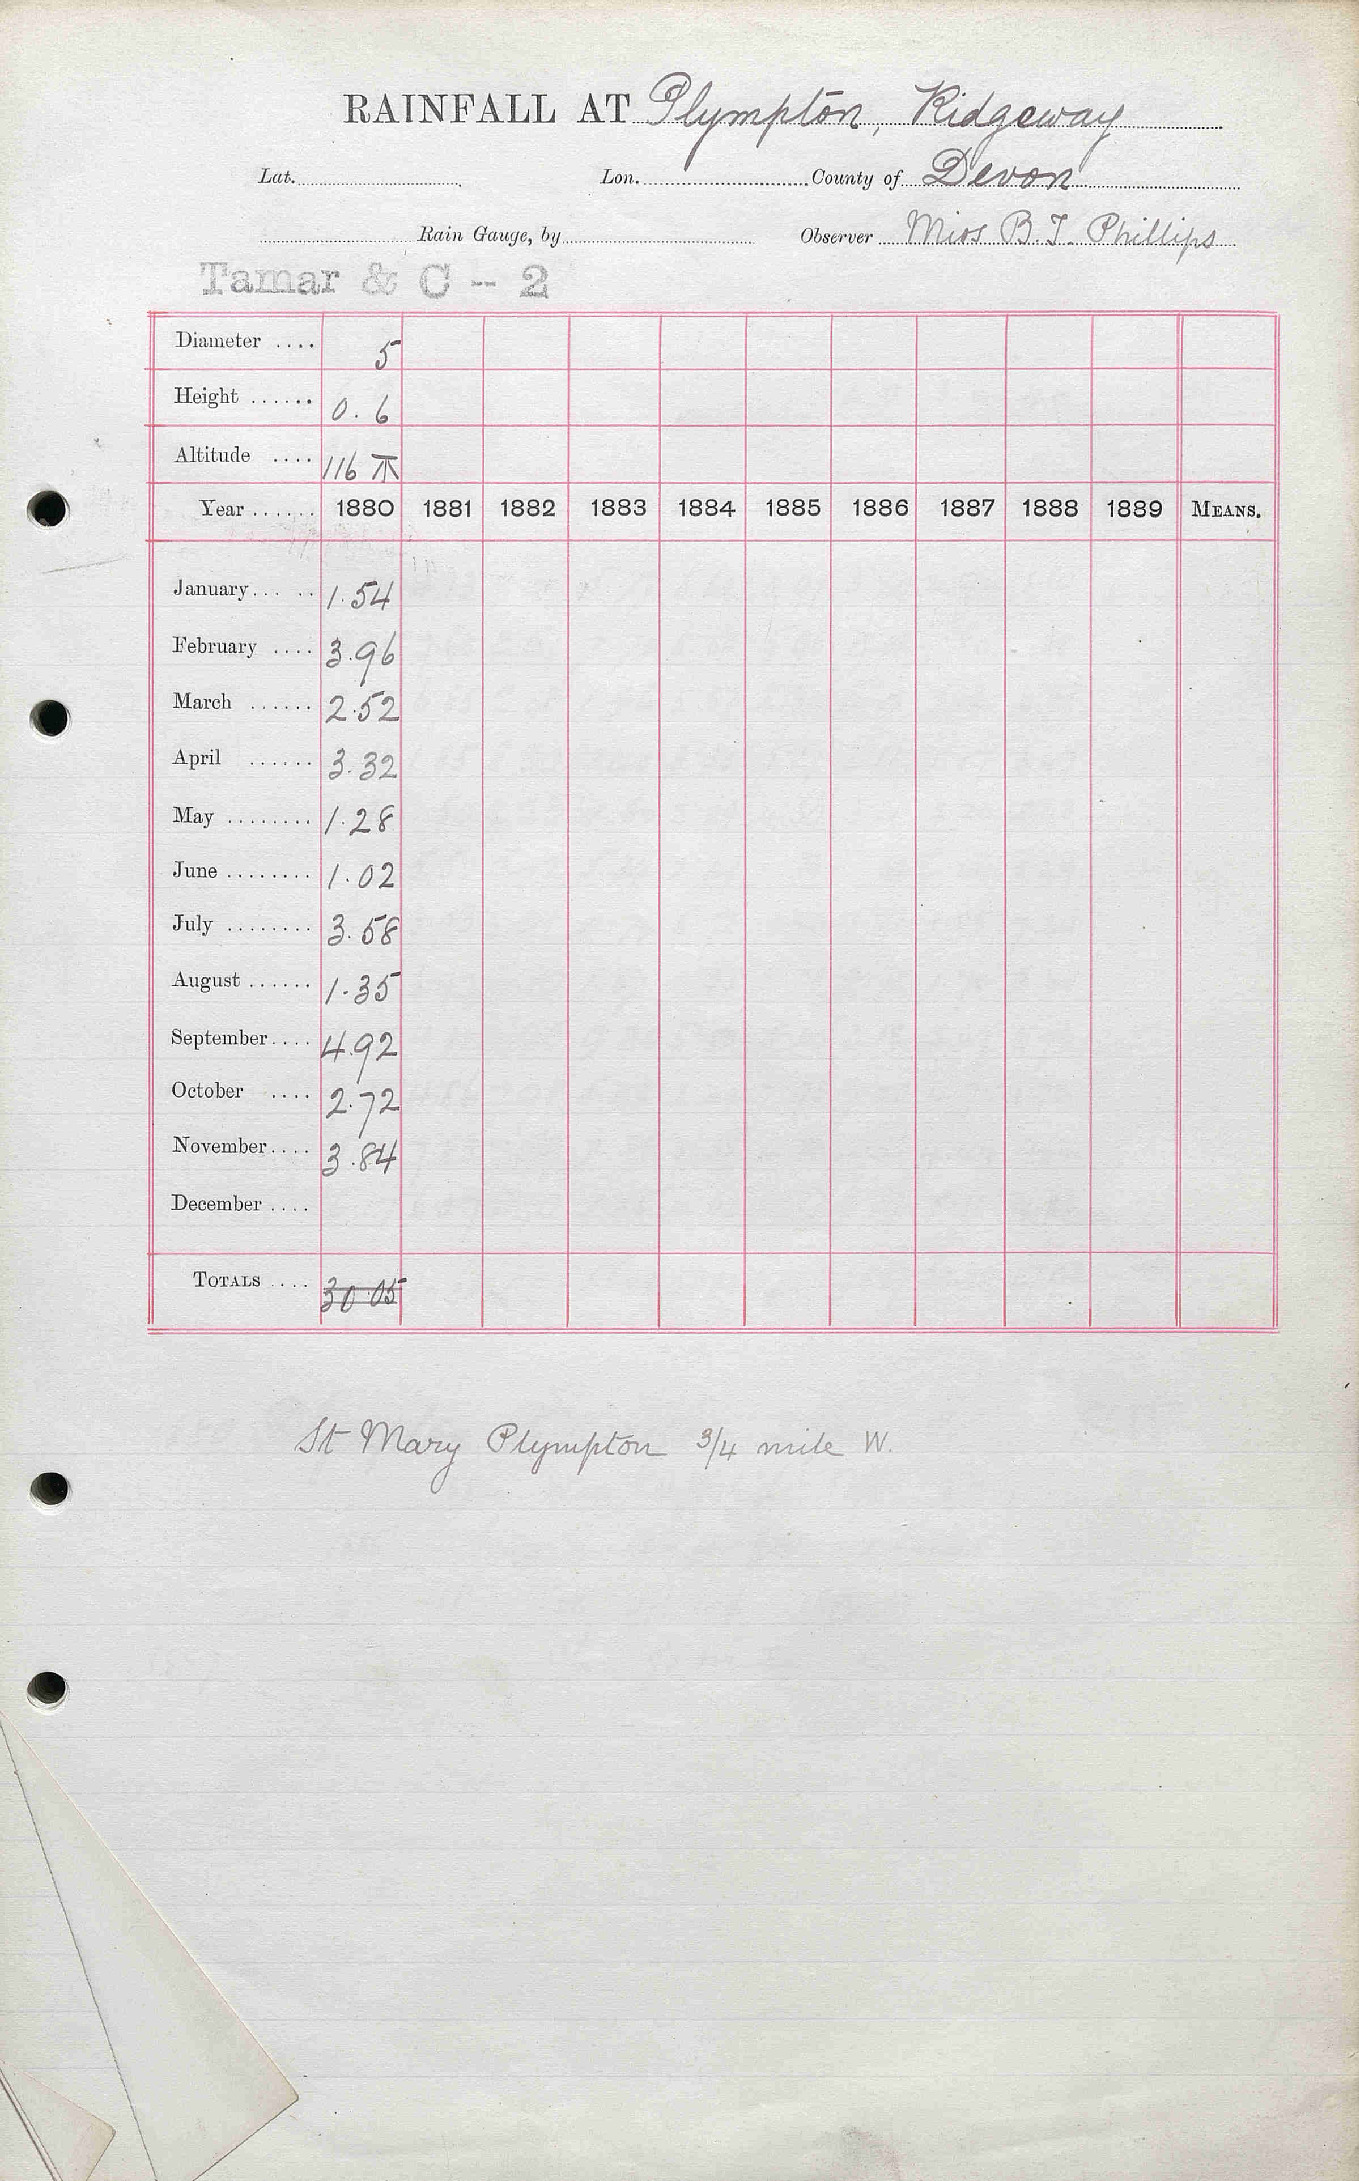 RAINFALL AT Plympton, Ridgeway
Lat. Lon. County of Devon
Rain Gauge, by Observer Miss B J. Phillips
Tamar & C -- 2
Diameter .... 5
Height ...... 0.6
Altitude .... 116
Year ...... 1880 1881 1882 1883 1884 1885 1886 1887 1888 1889 MEANS.
January ..... 1.54
February .... 3.96
March ...... 2.52
April ...... 3.32
May ........ 1.28
June ........ 1.02
July ........ 3.58
August ...... 1.35
September .... 4.92
October .... 2.72
November .... 3.84
December ....
TOTALS .... 30.05
St Mary Plympton 3/4 mile W.